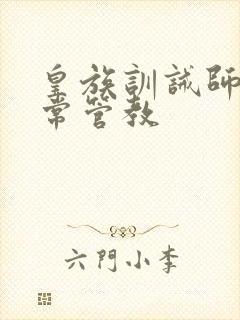 皇族訓誡師
常管教
六門小李